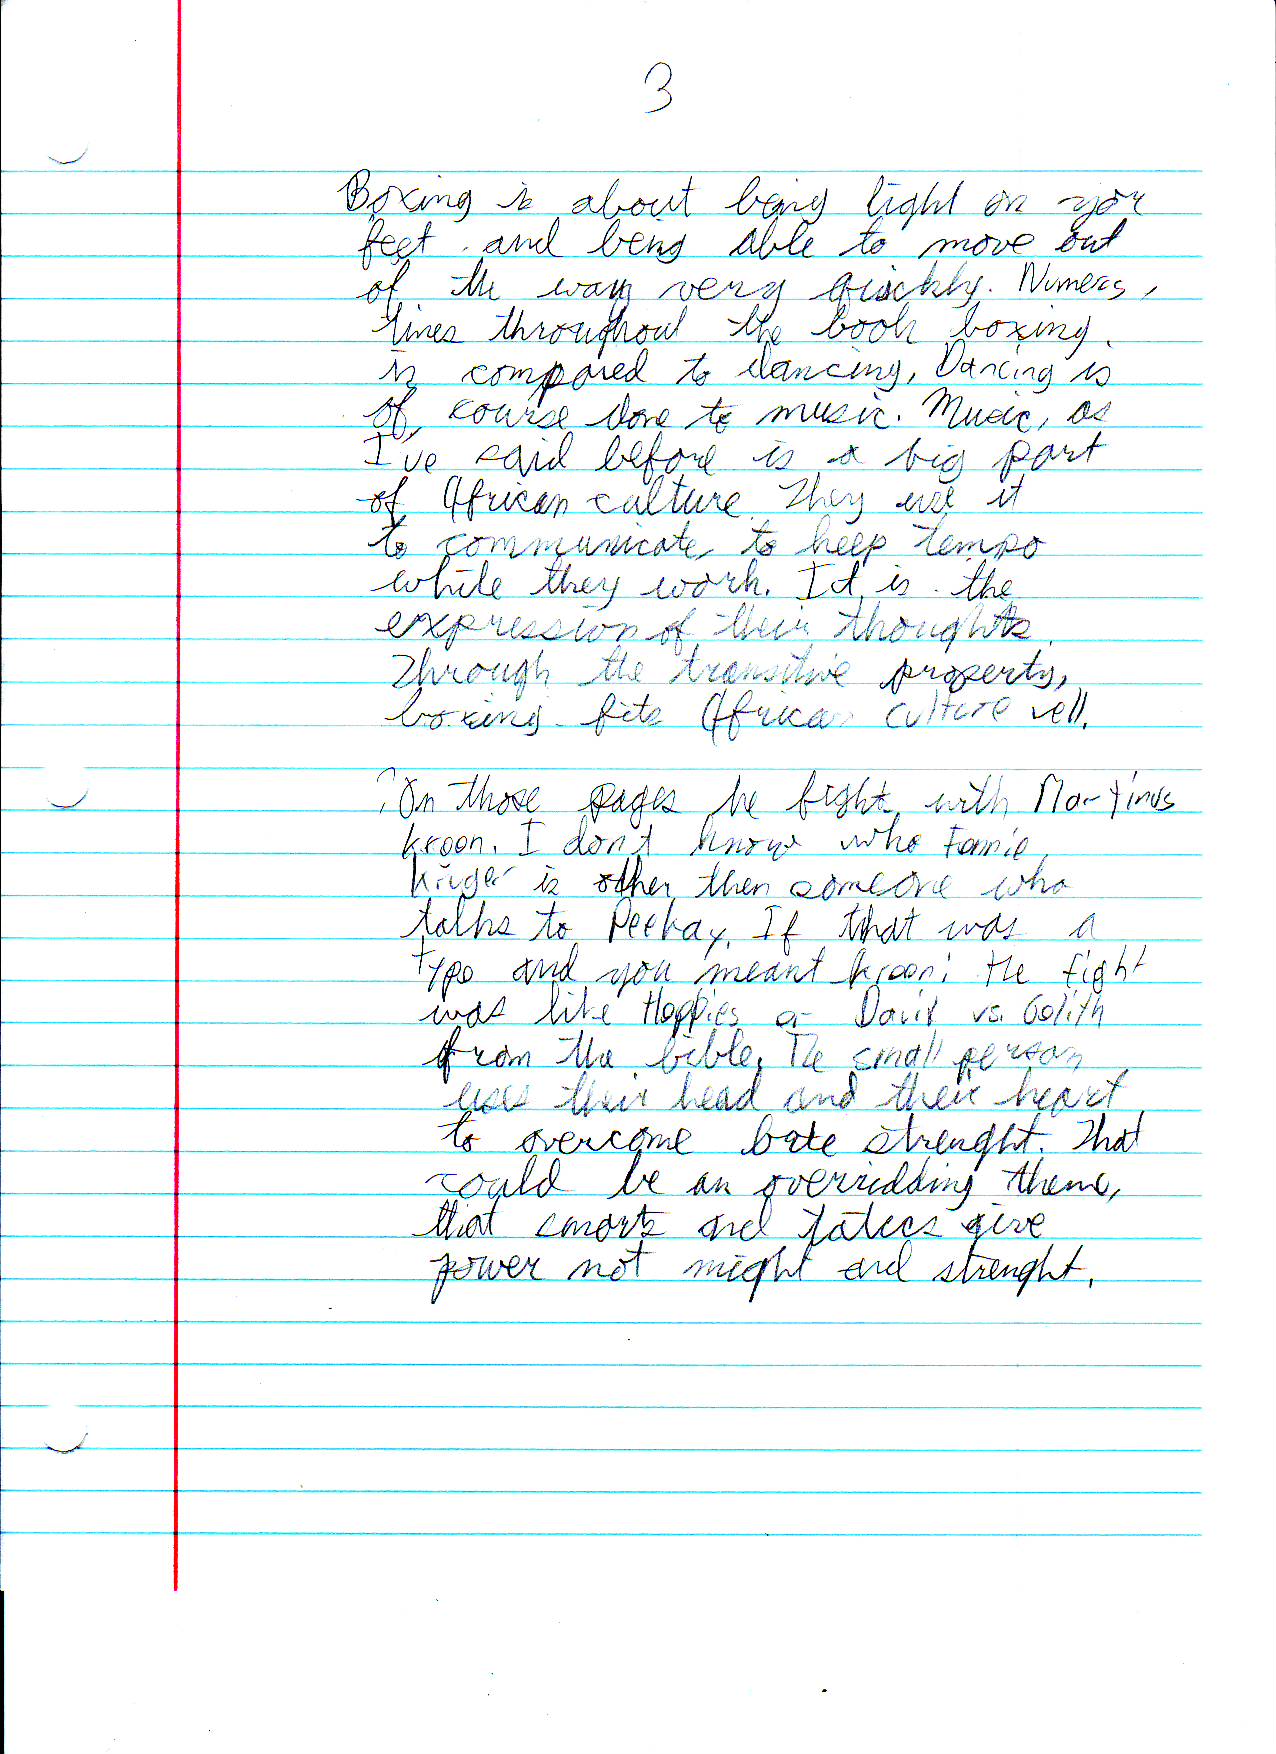 3
Boxing is about being light on your
feet and being able to move out
of the way very quickly. Numers
times throughout the book boxing
is compared to dancing, Dancing is
of course done to music. Music, as
I've said before is a big part
of African culture. They use it
to communicate, to keep tempo
while they work. It is the
expression of their thoughts.
Through the transitive property,
boxing fits African culture well.
? On those pages he fight with Martinus
kroon. I don't know who Fannie
kruger is other then someone who
talks to Peekay. If that was a
typo and you meant kroon: the fight
was like Hoppies or David vs. Golith
from the bible. The small person
uses their head and their heart
to overcome bute strenght. That
could be an overridding theme,
that smarts and give
power not might and strenght.